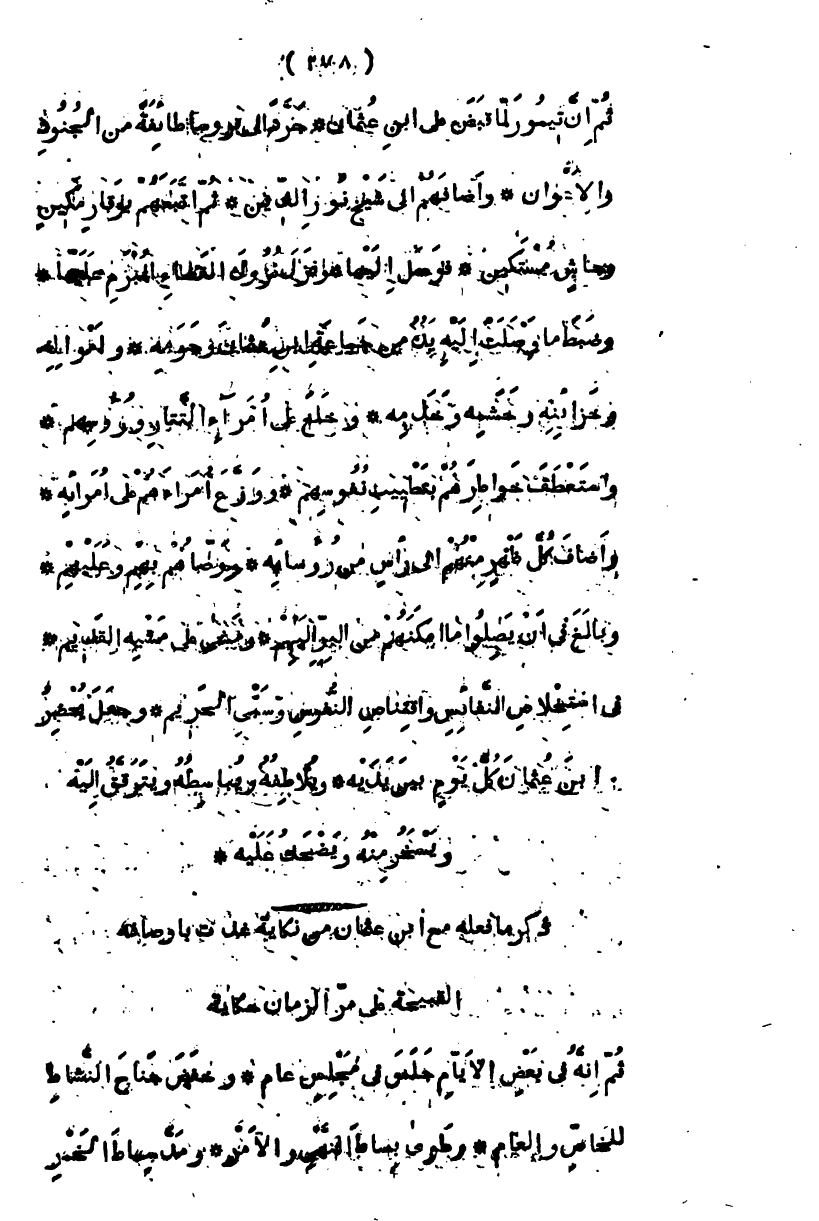 ( ٢٧٨ )
ثُمَّ اِنَّ تيمُورَ لَمَّا قبَضَ على ابنِ عُثمانَ * جَرَّدَ الى بروسا طائِفَةً من الجُنُودِ
والاَعْوان * وَاَضافَهُمْ الى شَيْخِ نُورِ الدّينِ * ثُمَّ اتَّبَعَهُمْ بِوَقارٍ مَكينٍ
وجاشٍ مُسْتَكينٍ * فوَصَلَ اِلَيْها * ونزَلَ نُزُولَ القَضاءِ المُبْرَمِ عَلَيْها *
وضَبَطَ ما وَصَلَتْ اِلَيْهِ يَدُهُ من جَماعَةِ ابنِ عُثمانَ وحَرَمِه * وأَمْوالِه
وخَزائِنِه وحَشَمِه وخَدَمِه * وخَلَعَ على اُمَراءِ التَّتارِ ورُؤُسِهِم *
واسْتَعْطَفَ خَواطِرَهُمْ بتَطْييبِ نُفُوسِهِمْ * ووَزَّعَ اُمَراءَهُمْ على اُمَرائِه *
واَضافَ كُلَّ ظَهْرٍ مِنْهُمْ الى رَأْسٍ من رُؤَسائِه * ووَصّاهُمْ بِهِم وعَلَيْهِم *
وبالَغَ فى اَنْ يَصِلُوا ما اَمْكَنَهُمْ من البِرِّ اِلَيْهِمْ * ومَشى على مَشْيِه القَديم *
فى اسْتِخْلاصِ النَّفائِسِ واقْتِناصِ النُّفُوسِ وسَبْىِ الحَريم * وجعَلَ يُحْضِرُ
ابنَ عُثمانَ كُلَّ يَوْمٍ بين يَدَيْه * ويُلاطِفُهُ ويُباسِطُهُ ويَتَرَقَّقُ اِلَيْه
ويَسْخَرُ مِنْهُ ويَضْحَكُ عَلَيْه *
ذكر ما فعله مع ابن عثمان من نكاية غدت باوصافه
القبيحة على مرّ الزمان حكاية
ثُمَّ اِنَّهُ فى بَعْضِ الاَيّامِ جَلَسَ فى مَجْلِسٍ عام * وخفَضَ جَناحَ النَّشاطِ
للخاصّ والعام * وطَوى بِساطَ النَّهْىِ والاَمْرِ * ومَدَّ سِماطَ الخَمْرِ